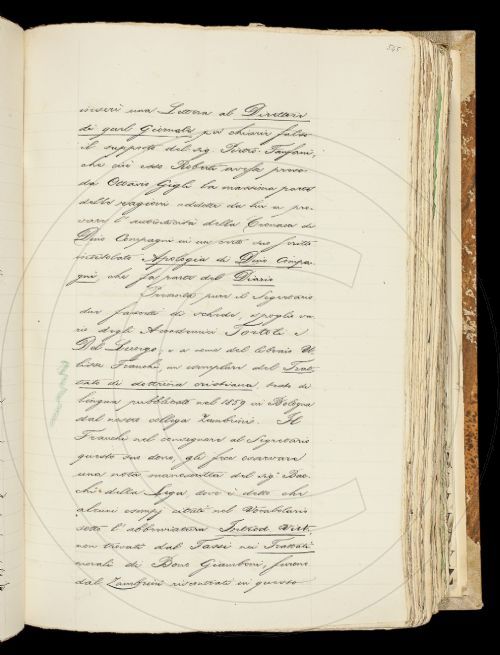 545
inserì una Lettera al Direttore
di quel Giornale per chiarir falso
il supposto del sig. Pietro Fanfani,
che cioè esso Roberti avesse preso
da Ottavio Gigli la massima parte
delle ragioni addotte da lui a pro-
vare l'autenticità della Cronaca di
Dino Compagni in un suo scritto
intitolato Apologia di Dino Compa-
gni, che fa parte del Diario.
Presentò pure il Segretario
due favoretti di schede, spoglio va-
rio degli Accademici Tortoli e
Del Lungo, e a nome del libraio
Franchi, un esemplare del Trat-
tato di dottrina cristiana, testo di
lingua pubblicato nel 1859 in Bologna
dal nostro collega Zambrini. Il
Franchi nel consegnare al Segretario
questo suo dono, gli fece osservare
una nota manoscritta del sig. Bac-
chi della Lega, dove è detto che
alcuni esempj citati nel Vocabolario
sotto l'abbreviatura Introd. Virt.
non trovati dal Tassi nei Trattati
morali di Bono Giamboni, furono
dal Zambrini riscontrati in questo